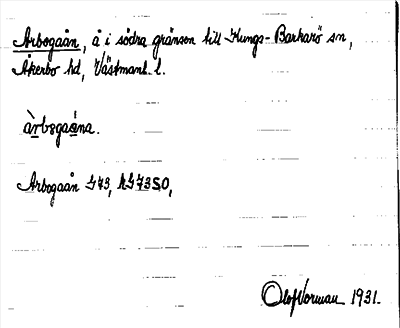 Arbogaån, å i södra gränsen till Kungs-Barkarö sn,
Åkerbo hd, Västmanl. l.
àrbogaána.
Arbogaån G73, hG73SO,
Olof Vorman 1931.